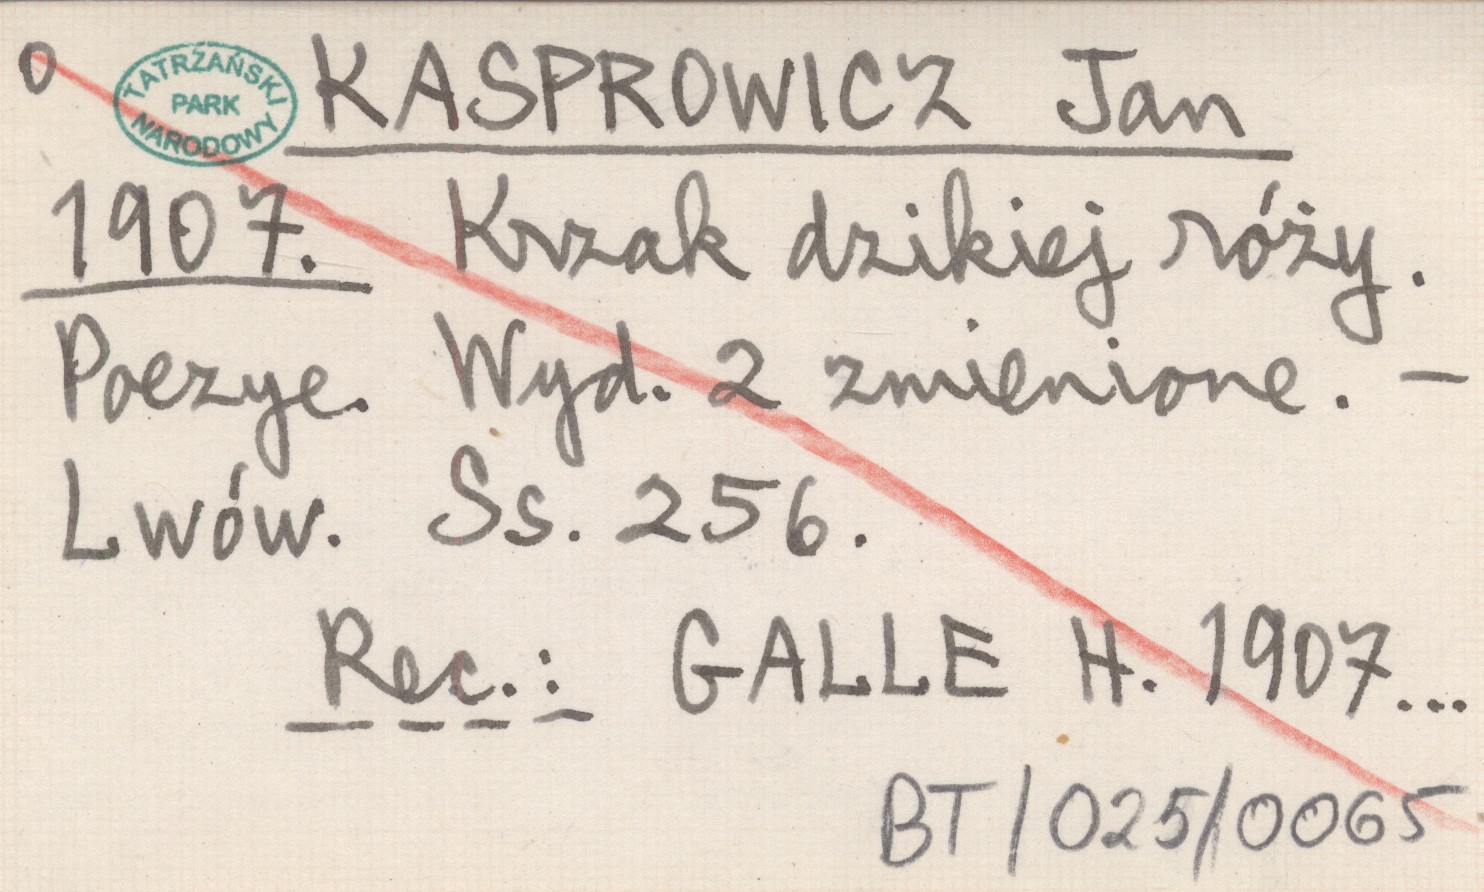 0
TATRZAŃSKI
PARK
NARODOWY
KASPROWICZ Jan
1907. Krzak dzikiej róży.
Poezye. Wyd. 2 zmienione. –
Lwów. Ss. 256.
Rec.: GALLE H. 1907...
BT/025/0065